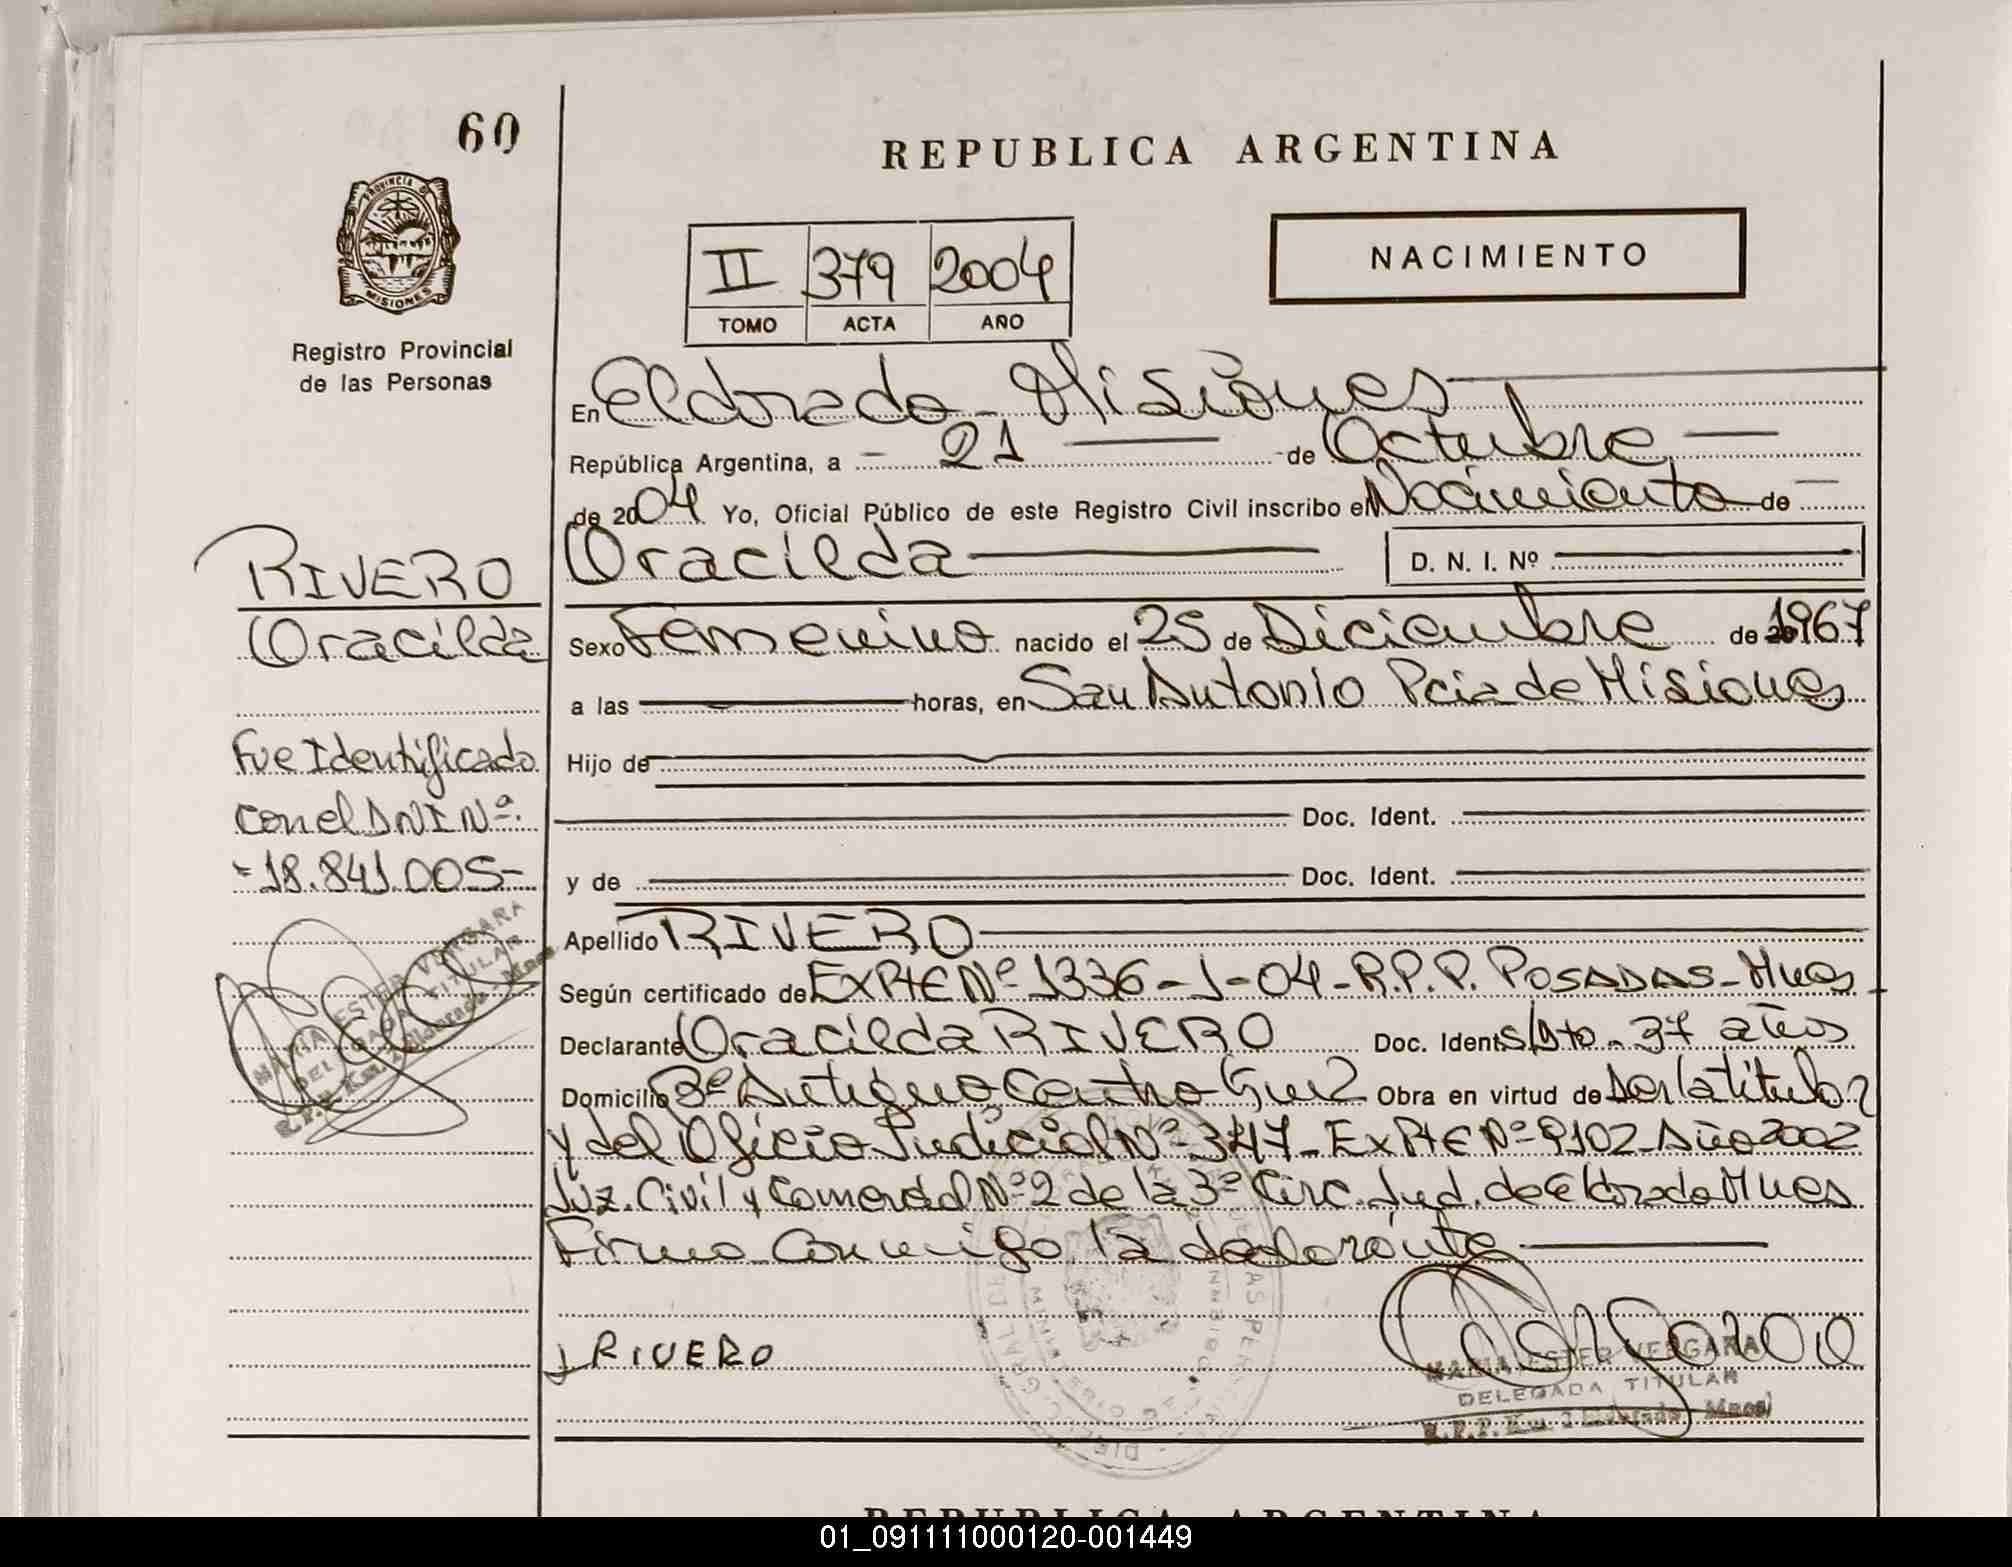 60
REPUBLICA ARGENTINA
PROVINCIA DE
MISIONES
Registro Provincial
de las Personas
II 379 2004
TOMO ACTA AÑO
NACIMIENTO
En Eldorado - Misiones
República Argentina, a - 21 de Octubre
de 2004 Yo, Oficial Público de este Registro Civil inscribo el Nacimiento de
Oracilda D. N. I. Nº
RIVERO
Oracilda
Sexo Femenino nacido el 25 de Diciembre de 1967
a las horas, en San Antonio Pcia de Misiones
Fue Identificado
con el DNI Nº.
- 18.841.005 -
Hijo de
Doc. Ident.
y de Doc. Ident.
Apellido RIVERO
Según certificado de EXPTE Nº 1336 - J - 04 - R.P.P. POSADAS - Mnes
Declarante Oracilda RIVERO Doc. Ident. s/dto - 37 años
Domicilio Bº Antiguo Centro Km 2 Obra en virtud de ser la titular
y del Oficio Judicial Nº 347 - EXPTE Nº 9102 - Año 2002
Juz. Civil y Comercial Nº 2 de la 3ª Circ. Jud. de Eldorado Mnes
Firma conmigo la declarante
MARIA ESTER VERGARA
DELEGADA TITULAR
R.P.P. Km. 2 Eldorado - Mnes
RIVERO
MARIA ESTER VERGARA
DELEGADA TITULAR
R.P.P. Km. 2 Eldorado - Mnes
REPUBLICA ARGENTINA
01_091111000120-001449